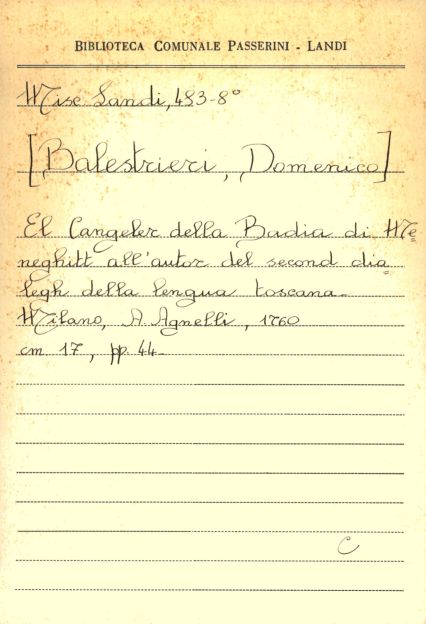 BIBLIOTECA COMUNALE PASSERINI - LANDI
Misc. Landi, 493-8°
[Balestrieri, Domenico]
El Cangeler della Badia di Me=
neghitt all'autor del second dia=
legh della lengua toscana.
Milano, A. Agnelli, 1760
cm 17, pp. 44.
C